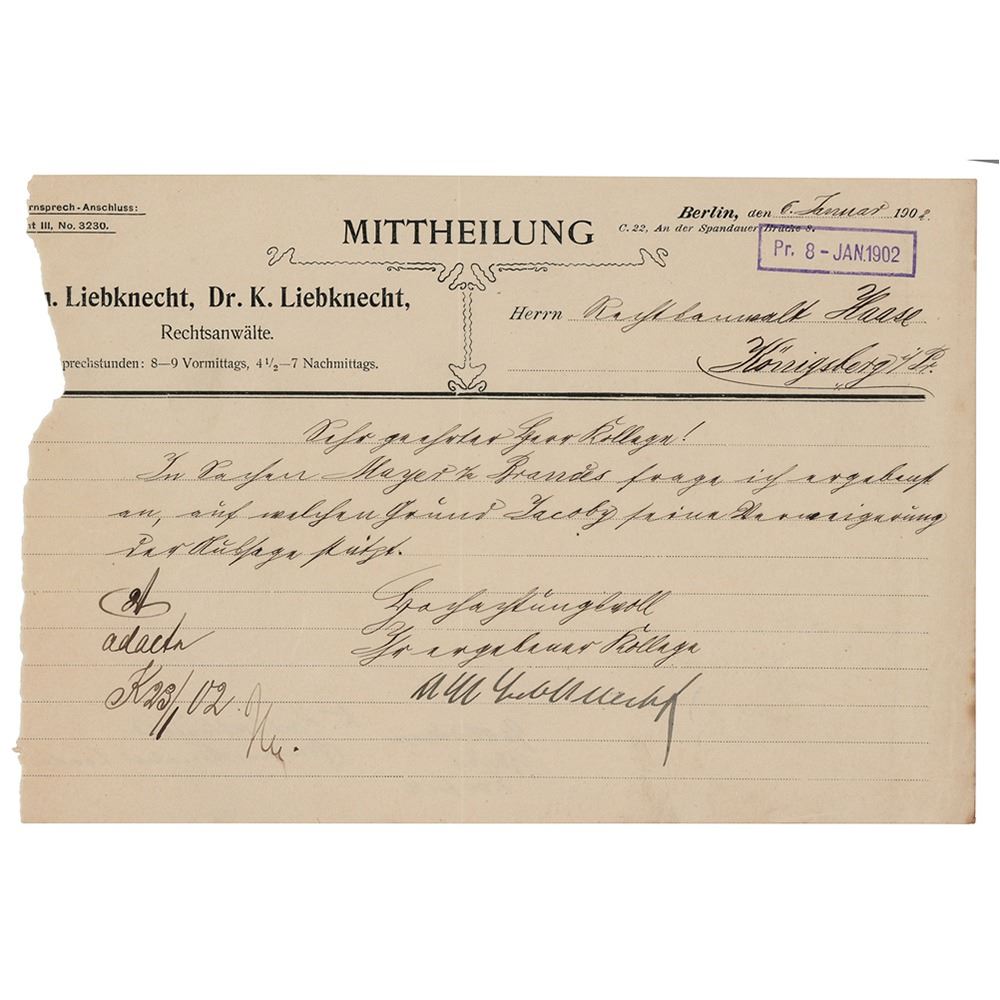 rnsprech-Anschluss:
nt III, No. 3230.
MITTHEILUNG
Berlin, den 6. Januar 1902.
C. 22, An der Spandauer Brücke 8.
Pr. 8 - JAN. 1902
Liebknecht, Dr. K. Liebknecht,
Rechtsanwälte.
prechstunden: 8—9 Vormittags, 4½—7 Nachmittags.
Herrn Rechtsanwalt Haase
Königsberg i/Pr.
Sehr geehrter Herr Kollege!
In Sachen Mayer Brandes frage ich ergebenst
an, auf welchen Grund Jacoby seine Verweigerung
der Aussage stützt.
Hochachtungsvoll
Ihr ergebener Kollege
Liebknecht
ad acta
K 23/1 02